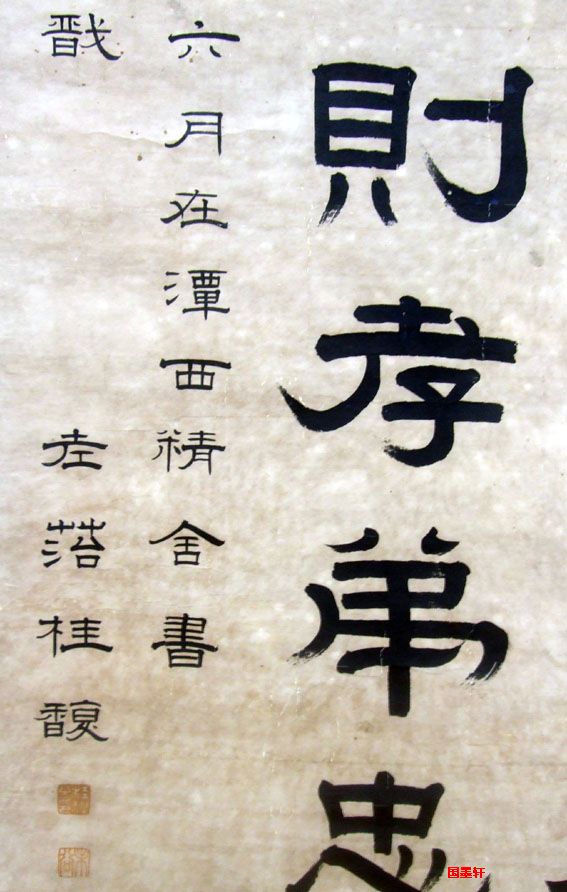 則孝弟忠
六月在潭西精舍書
戩
老菭桂馥
国墨轩